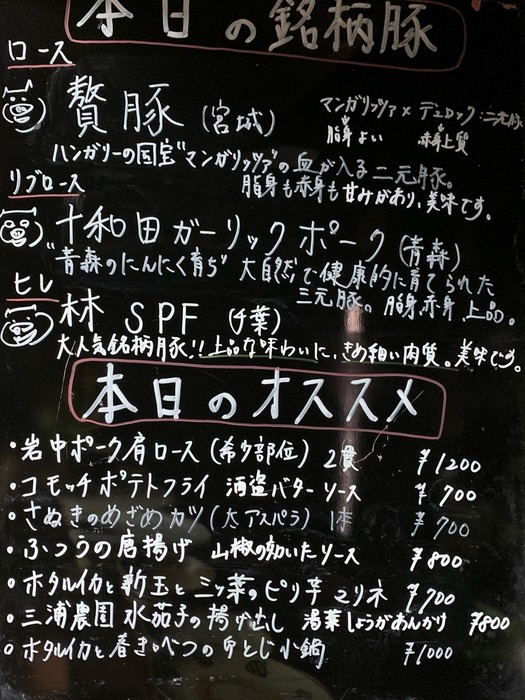 本日の銘柄豚
ロース
贅豚(宮城)
マンガリッツァ×デュロック:二元豚
脂身よい 赤身上質
ハンガリーの国宝"マンガリッツァ"の血が入る二元豚。
脂身も赤身も甘みがあり、美味です。
リブロース
十和田ガーリックポーク(青森)
"青森のにんにく育ち"大自然で健康的に育てられた
三元豚。脂身、赤身、上品。
ヒレ
林SPF(千葉)
大人気銘柄豚!!上品な味わいに、きめ細い肉質。美味です。
本日のオススメ
・岩中ポーク肩ロース(希少部位)2貫 ¥1200
・コモッチポテトフライ 酒盗バターソース ¥700
・さぬきのめざめカツ(大アスパラ)1本 ¥700
・ふつうの唐揚げ 山椒の効いたソース ¥800
・ホタルイカと新玉と三ッ葉のピリ辛マリネ ¥700
・三浦農園水茄子の揚げ出し 湯葉しょうがあんかけ ¥800
・ホタルイカと春きゃべつの玉とじ小鍋 ¥1000